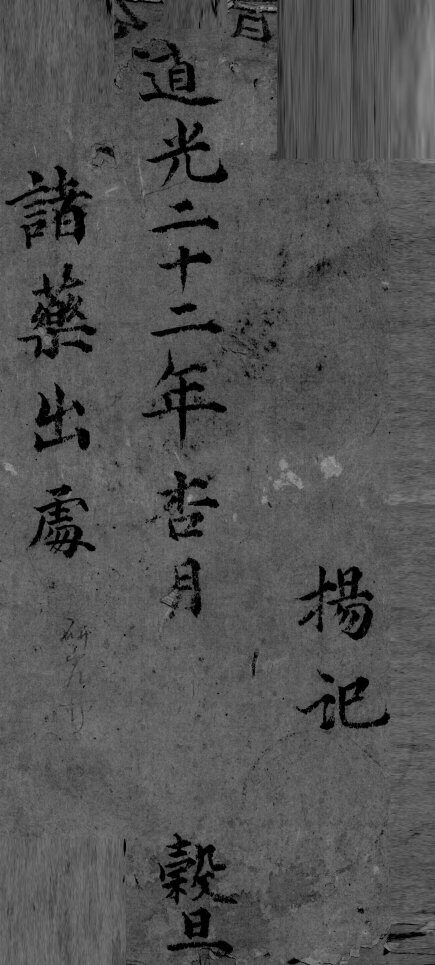 揚記
道光二十二年杏月 穀旦
諸藥出處